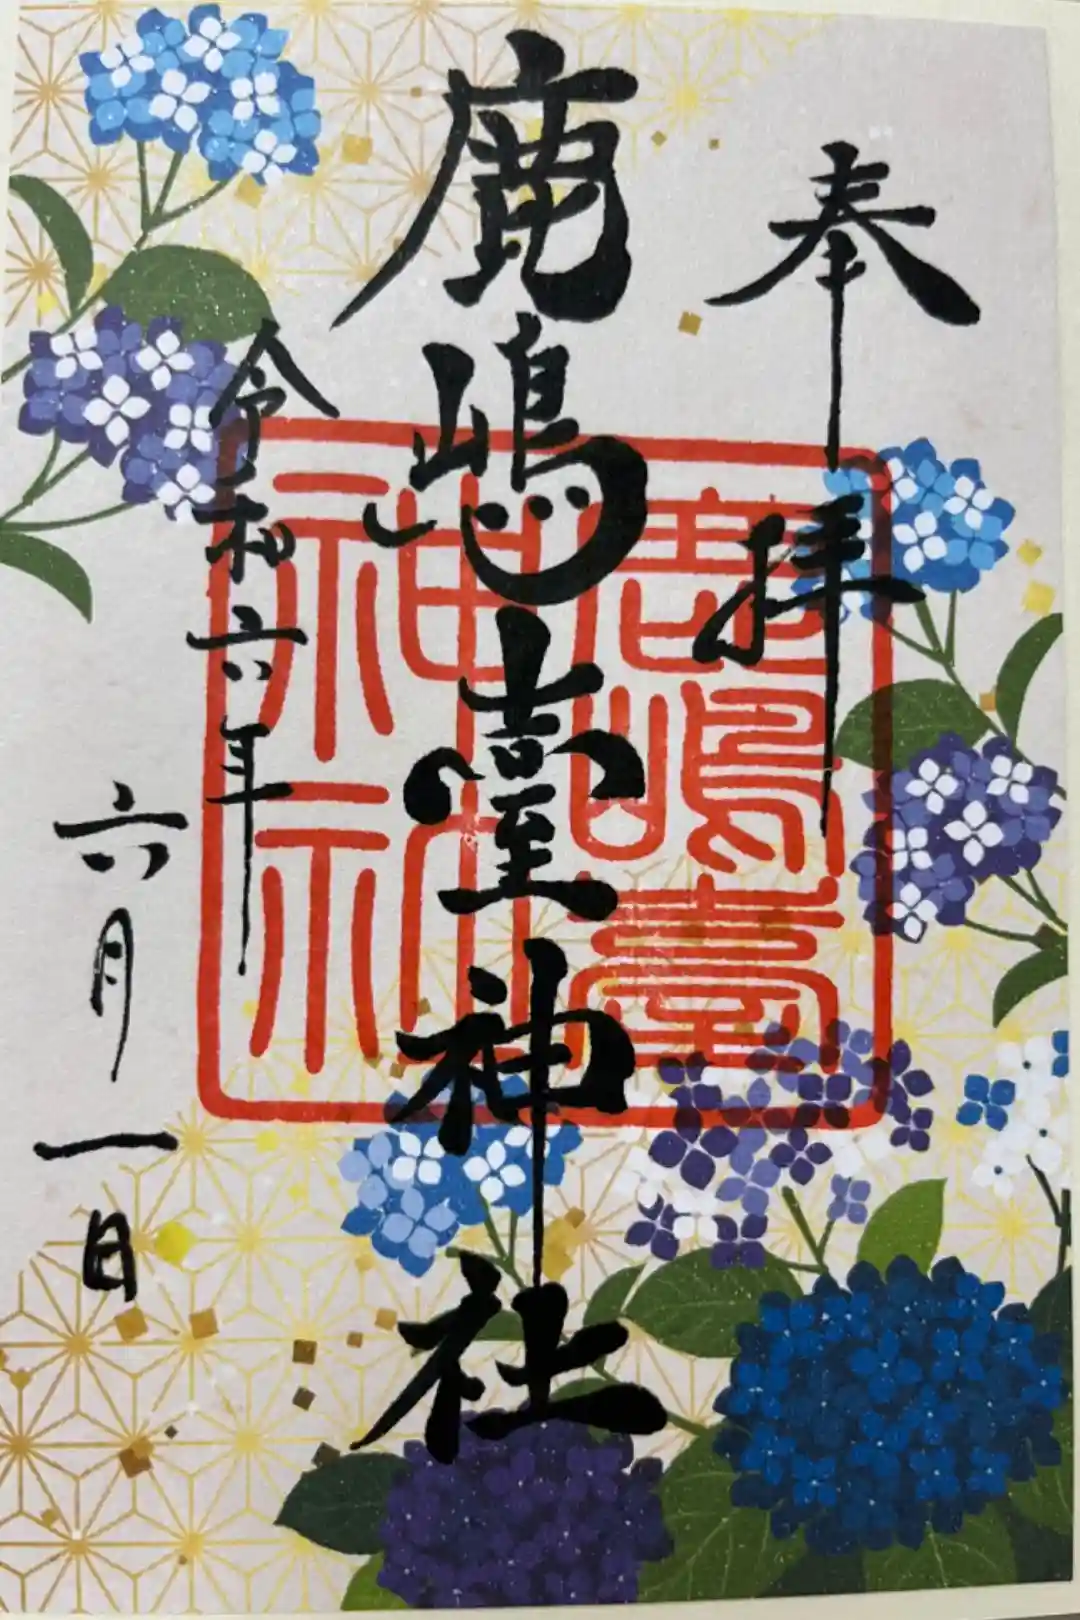 奉拝
鹿嶋臺神社
鹿嶋臺
神社神社
令和六年
六月一日